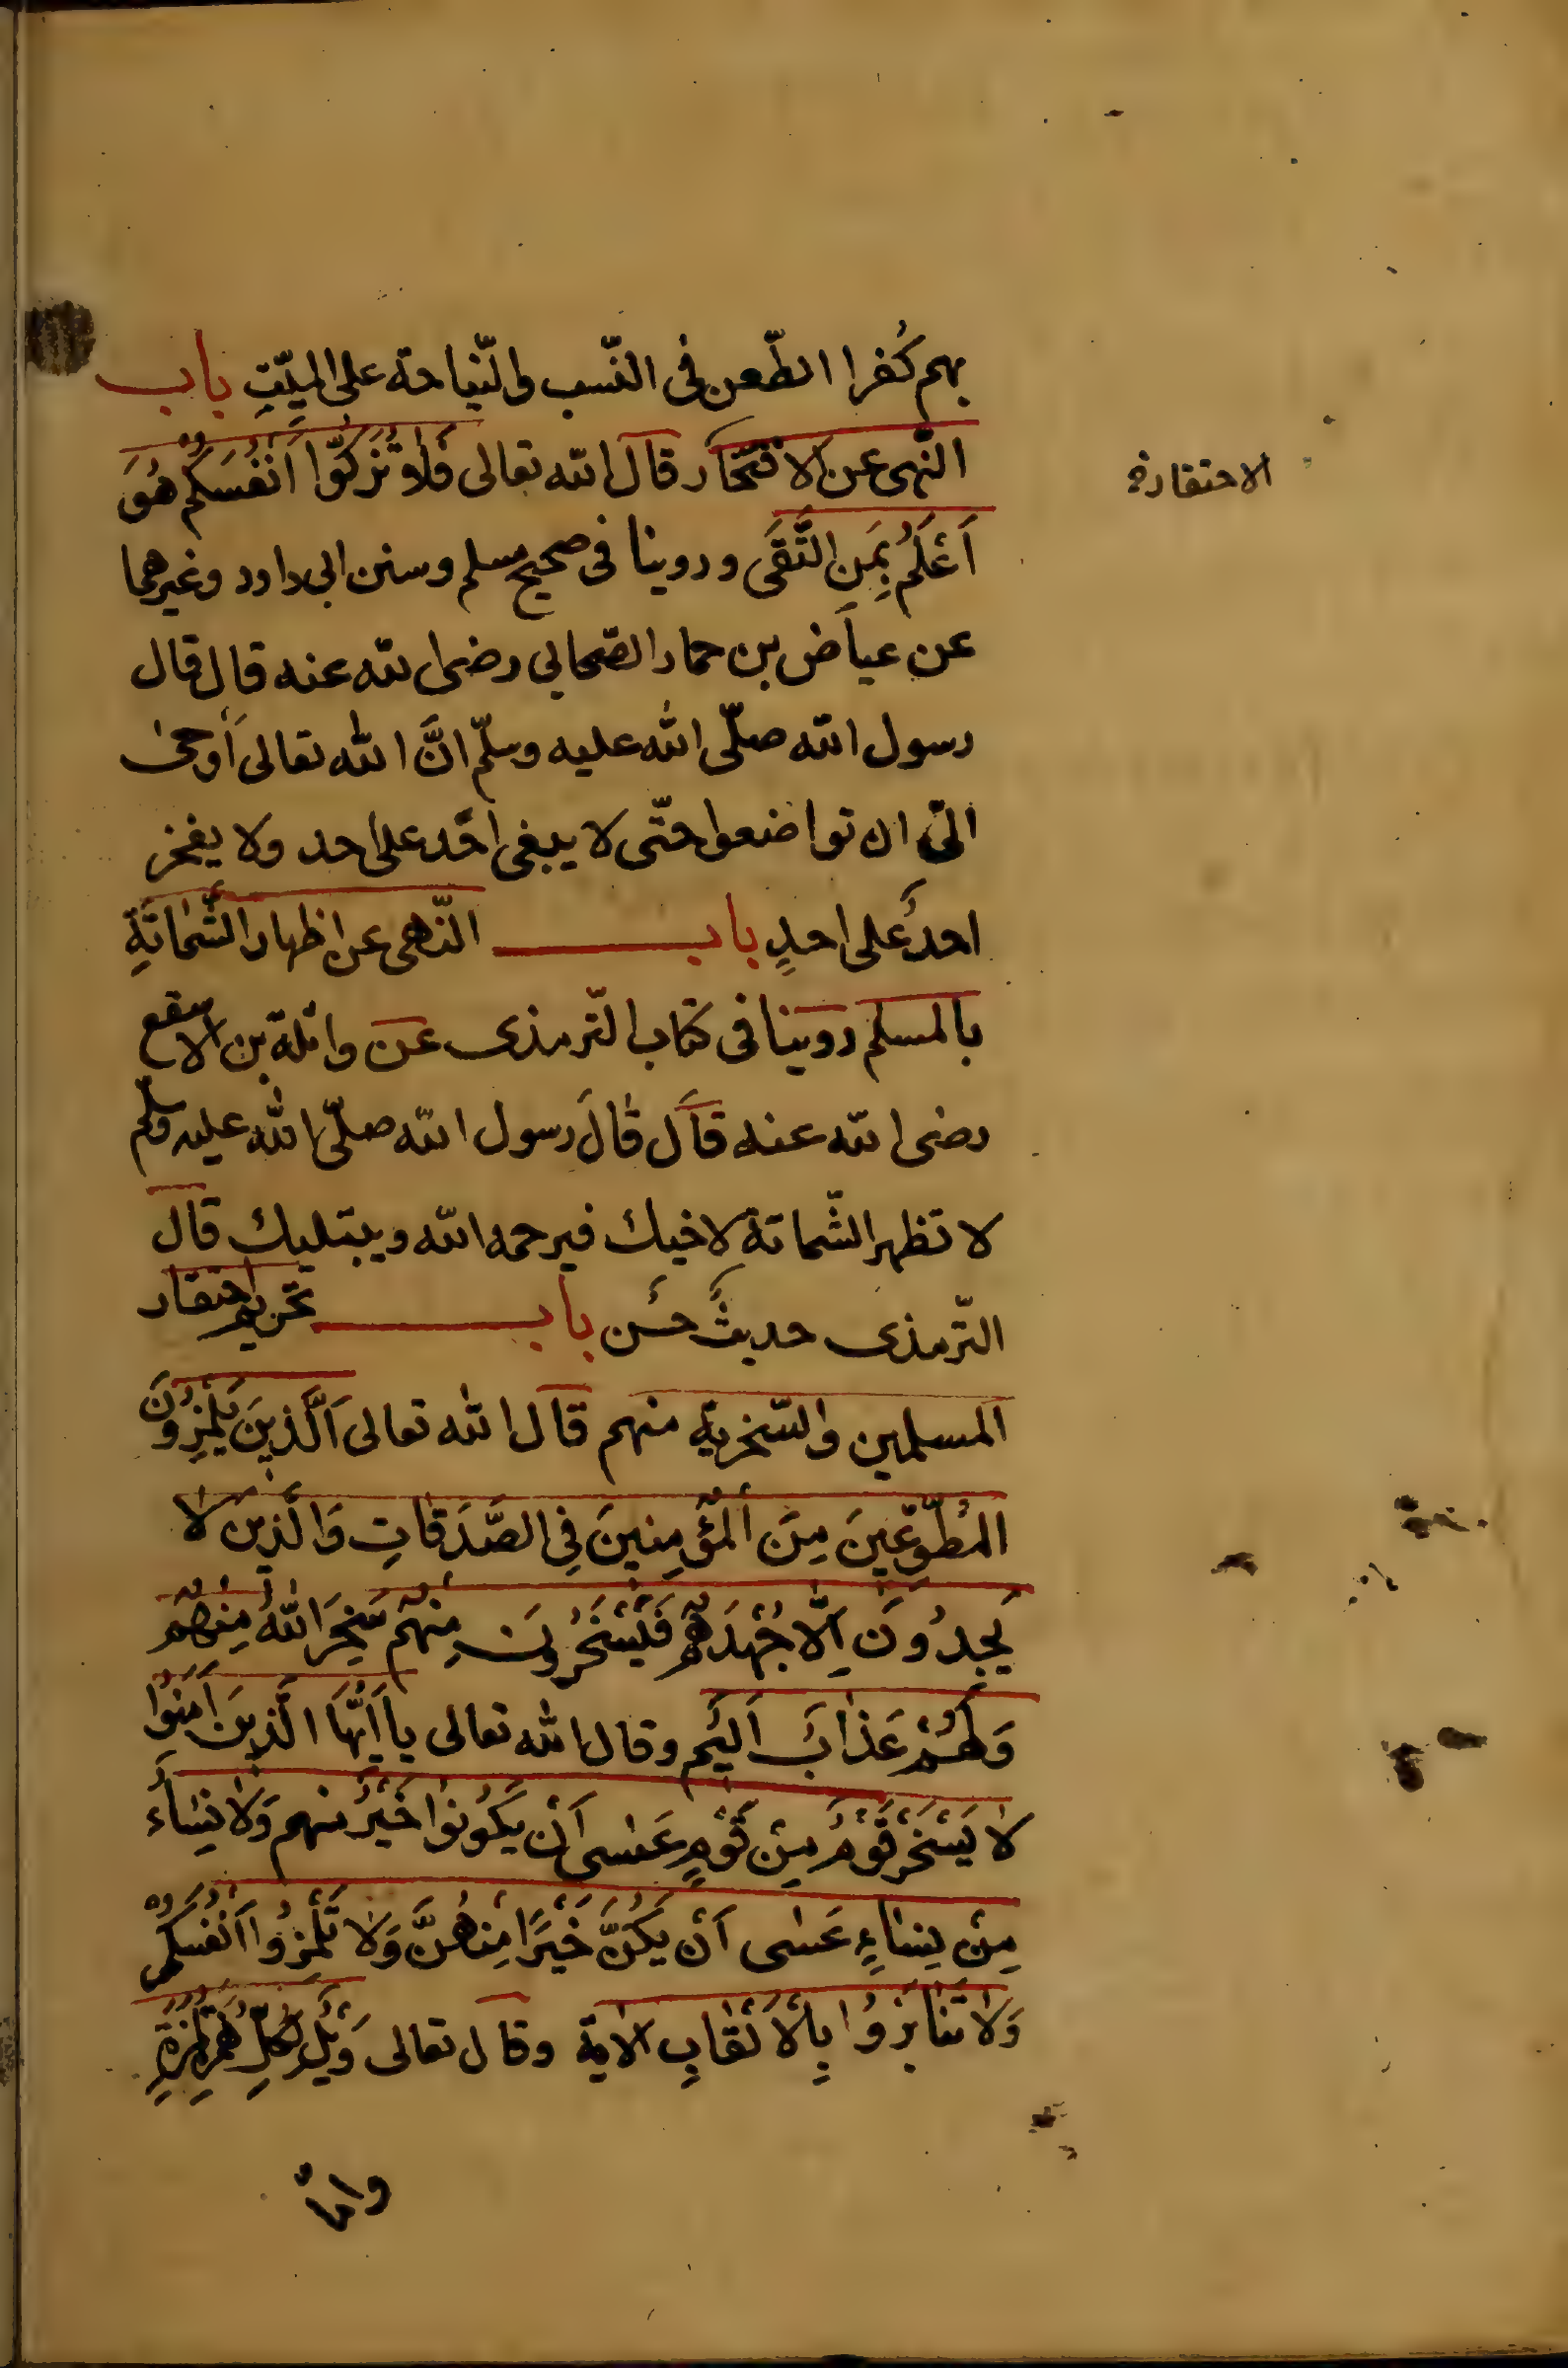 بهم كُفرا الطّعن فى النّسب والنّياحة على الميّتِ باب
النّهى عن الافتخار قال الله تعالى فَلَا تُزَكُّوا اَنْفُسَكُمْ هُوَ
الاحتقارة
اَعْلَمُ بِمَنِ اتَّقَى وروينا فى صحيح مسلم وسنن ابى داود وغيرهما
عن عياض بن حمار الصّحابى رضى الله عنه قال قال
رسول الله صلّى الله عليه وسلّم انَّ الله تعالى أوحى
الىّ ان تواضعوا حتّى لا يبغى احد على احد ولا يفخر
احدٌ على احدٍ باب النّهى عن اظهار الشَّمَاتَةِ
بالمسلم روينا فى كتاب التّرمذى عن واثلة بن الاسقع
رضى الله عنه قال قال رسول الله صلّى الله عليه وسلّم
لا تظهر الشّماتة لاخيك فيرحمه الله ويبتليك قال
التّرمذى حديثٌ حسَن باب تحريم احتقار
المسلمين والسّخرية منهم قال الله تعالى اَلَّذِينَ يَلْمِزُونَ
المُطَّوِّعِينَ مِنَ الْمُؤْمِنينَ فِي الصَّدَقَاتِ وَالَّذِينَ لَا
يَجِدُونَ اِلَّا جُهْدَهُمْ فَيَسْخَرُونَ مِنْهُمْ سَخِرَ اللّهُ مِنْهُمْ
وَلَهُمْ عَذَابٌ اَلِيم وقال الله تعالى يا اَيُّهَا الَّذِينَ آمَنُوا
لا يَسْخَرْ قَوْمٌ مِنْ قَوْمٍ عَسَى اَنْ يَكُونُوا خَيْرًا منهم وَلَا نِسَاءٌ
مِنْ نِسَاءٍ عَسَى اَنْ يَكُنَّ خَيْرًا مِنْهُنَّ وَلَا تَلْمِزُوا اَنْفُسَكُمْ
وَلَا تَنَابَزُوا بِالْاَلْقَابِ الاية وقال تعالى وَيْلٌ لِكُلِّ هُمَزَةٍ لُمَزَةٍ
وامّا